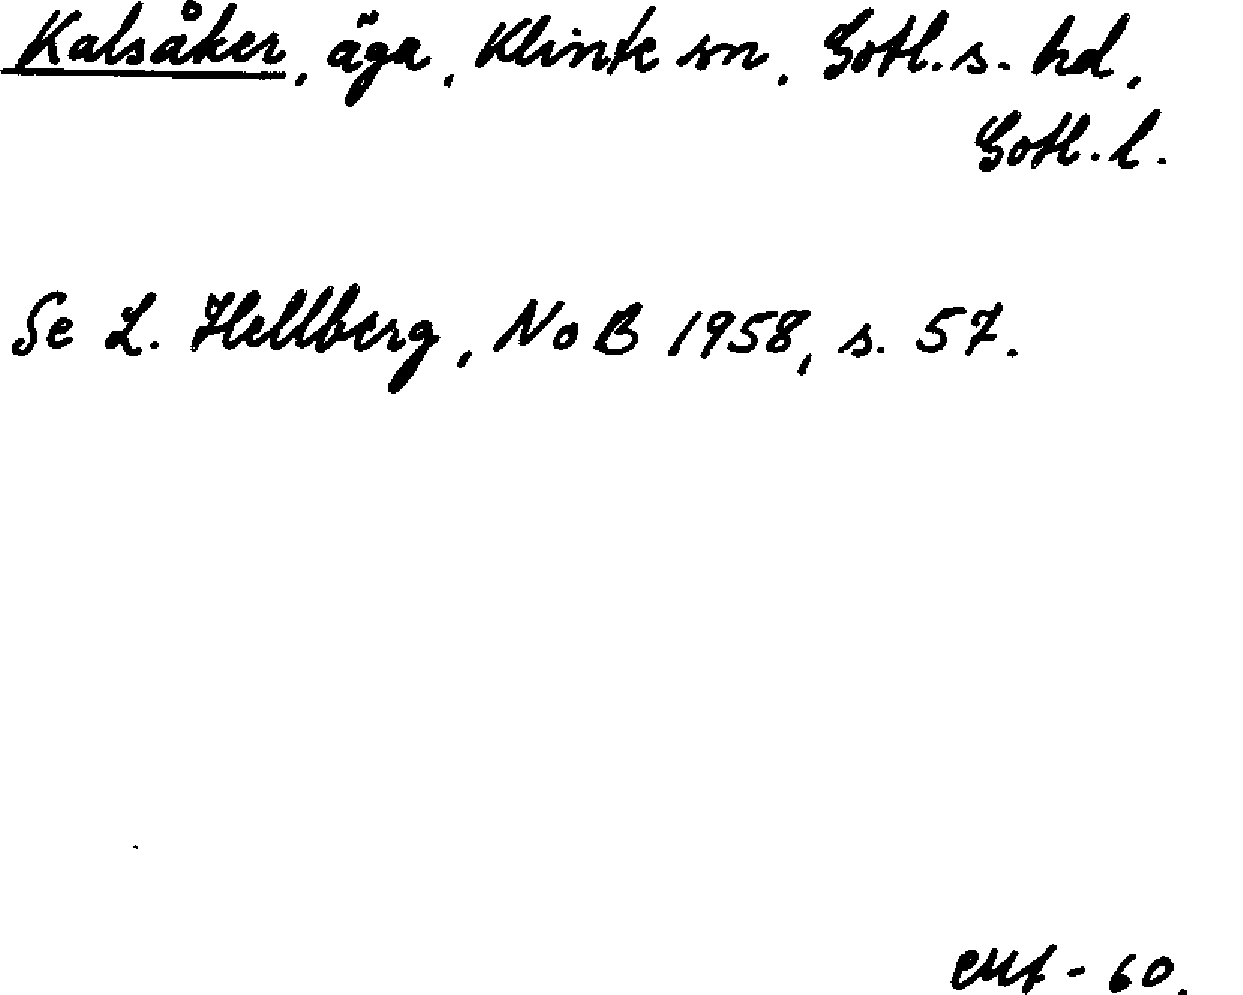 Kalsåker, äga, Klinte sn, Gotl. s. hd,
Gotl. l.
Se L. Hellberg, NoB 1958, s. 57.
- 60.